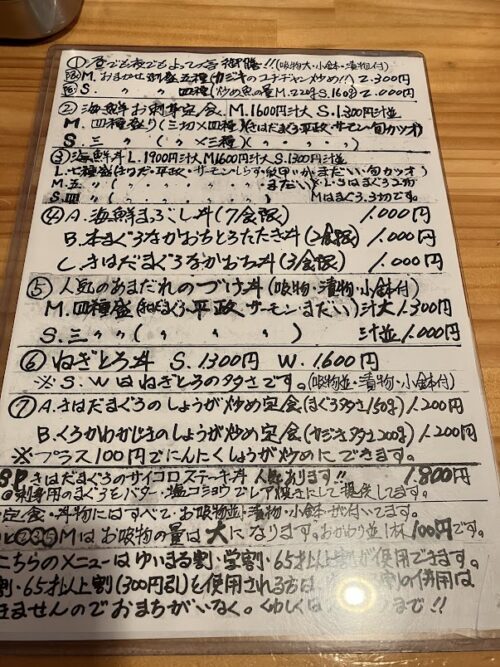 ① 昼でも夜でもよって吉御膳!!(吸物大・小鉢・漬物付)
M. おまかせ刺盛五種(カジキのコチヂャン炒め!!) 2.300円
S. 〃 四種(炒め魚の量M.220g S.160g) 2.000円
② 海鮮お刺身定食 M.1600円汁大 S.1300円汁並
M. 四種盛り(三切×四種)(きはだまぐろ・平政・サーモン・旬カツオ)
S. 三 〃 (〃×三種)(〃・〃・〃)
③ 海鮮丼 L.1900円汁大 M.1600円汁大 S.1300円汁並
L. 七種盛(きはだ・平政・サーモン・しらす・紋甲いか・まだい・旬カツオ)
M. 五 〃 (〃・〃・〃・〃・まだい) ※L.Sはまぐろ2切
S. 四 〃 (〃・〃・〃・〃) Mはまぐろ3切です。
④ A. 海鮮まぶこし丼(7食限) 1.000円
B. 本まぐろなかおちとろたたき丼(2食限) 1.000円
C. きはだまぐろなかおち丼(3食限) 1.000円
⑤ 人気のあまだれのづけ丼(吸物・漬物・小鉢付)
M. 四種盛(きはだまぐろ・平政・サーモン・まだい) 汁大 1.300円
S. 三 〃 〃 (〃・〃・〃) 汁並 1.000円
⑥ ねぎとろ丼 S.1300円 W.1.600円
※S.Wはねぎとろの多さです。(吸物並・漬物・小鉢付)
⑦ A. きはだまぐろのしょうが炒め定食(まぐろ多さ150g) 1.200円
B. くろかわかじきのしょうが炒め定食(カジキ多さ200g) 1.200円
※プラス100円でにんにくしょうが炒めにできます。
SP きはだまぐろのサイコロステーキ丼 人気あります!! 1.800円
◎刺身用のまぐろをバター・塩コショウでレア焼きにして提供してます。
定食・丼物にはすべて・お吸物並・漬物・小鉢が付いてます。
②③⑤Mはお吸物の量は大になります。おかわり並1杯100円です。
こちらのメニューはゆいまる割・学割・65才以上割が使用できます。
割・65才以上割(300円引)を使用される方は の併用は
きませんのでおまちがいなく。くわしくは まで!!